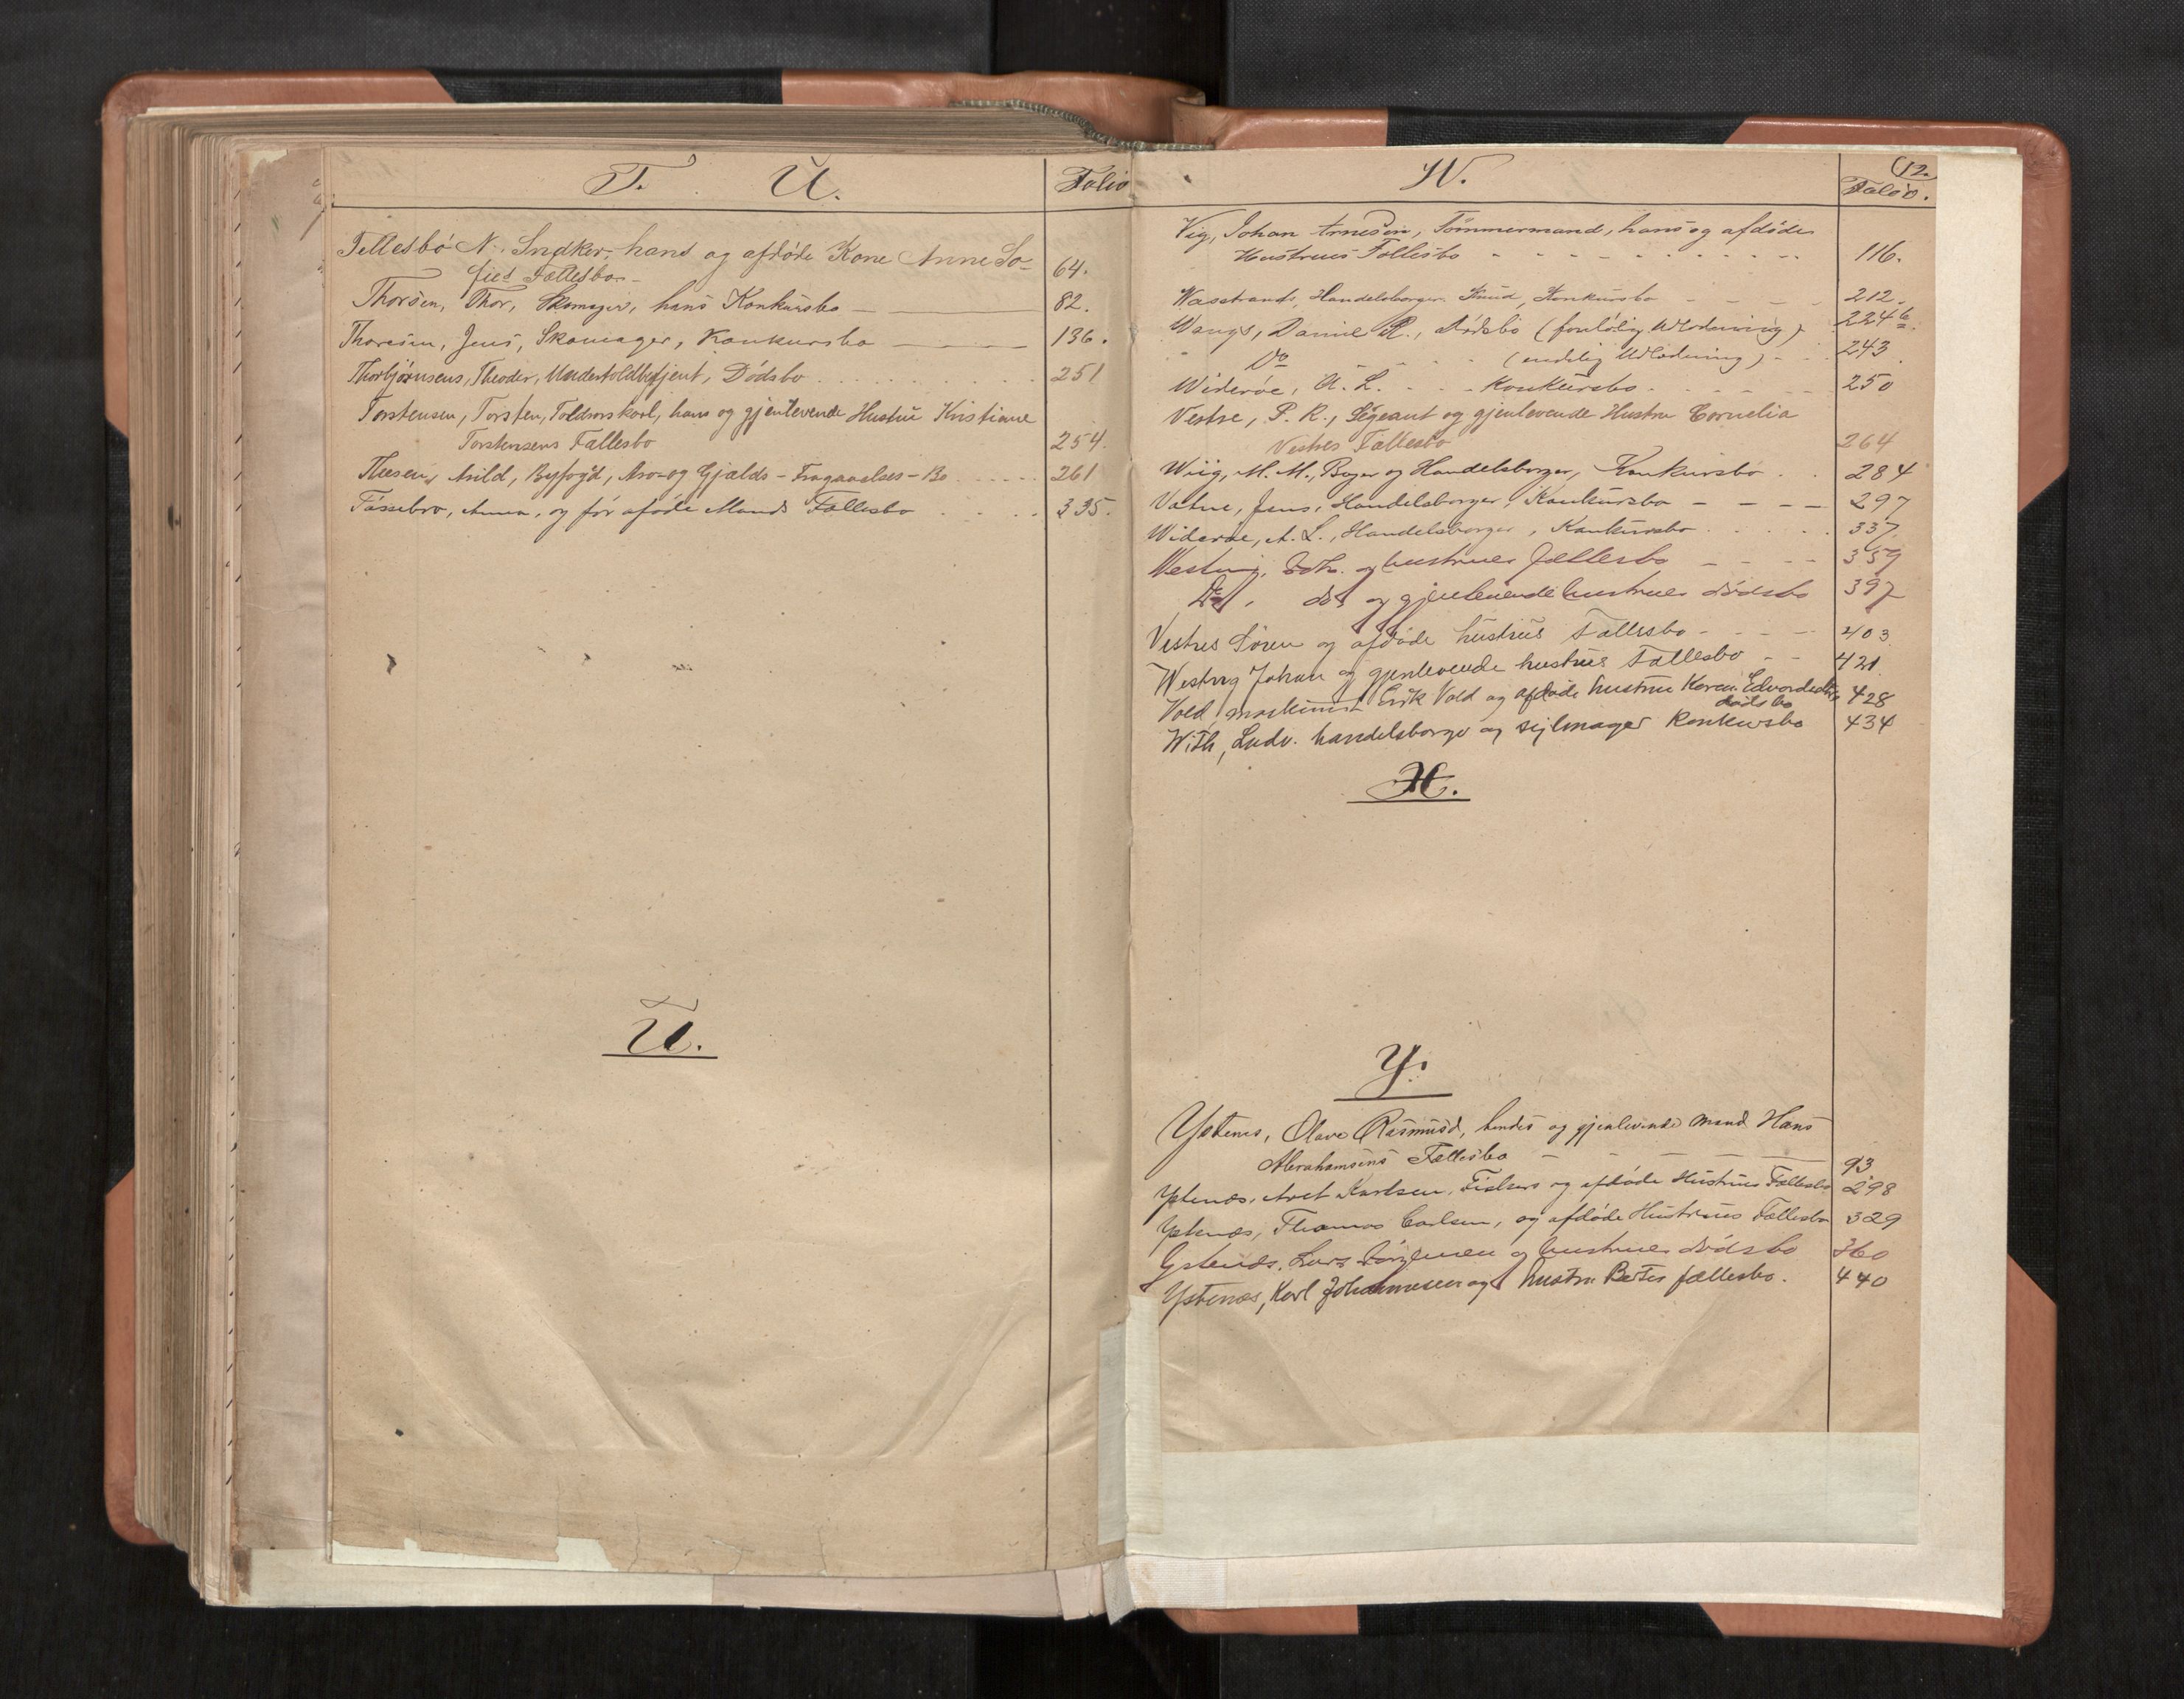 T. U. Folio
Tellesbö N. Sndker, hans og afdöde Kone Anne So-
fies Fællesbo - 64.
Thorsen, Thor, Skomager, hans Konkursbo - 82.
Thoresen, Jens, Skomager, Konkursbo - 136.
Thorbjörnsens, Theodor, Undertoldbetjent, Dödsbo . . . 251
Torstensen, Torsten, Toldrorskarl, hans og gjenlevende Hustru Kristiane
Torstensens Fællesbo 254.
Thesen, Arild, Byfogd, Arve- og Gjælds-Fragaaelses-Bo . . . 261
Tössebro, Anna, og för aföde Mands Fællesbo . . . 335.
U.
12.
W. Folio.
Vig, Johan Arnesen, Tömmermand, hans og afdödes
Hustrues Fællesbo - - - 116.
Wasstrands, Handelsborger Knud, Konkursbo - - - 212.
Wangs, Daniel R., Dödsbo (forelöbig Udlodning) 224 b.
Do (endelig Udlodning) - 243
Wideröe, A. L. - - - Konkursbo. - - - 250
Vestre, P. R., Sergeant og gjenlevende Hustru Cornelia
Vestres Fællesbo 264
Wiig, M. M., Bager og Handelsborger, Konkursbo . 284
Vatne, Jens, Handelsborger, Konkursbo - - - - 297
Wideröe, A. L., Handelsborger, Konkursbo . . . . 337.
Westing, Joh. og hustrues fællesbo - - - - 359
Do, do og gjenlevende hustrues dödsbo 397
Vestres Sören og afdöde hustrus Fællesbo - - - - 403
Westvig Johan og gjenlevende hustrus Fællesbo - - 421
Vold, maskinist Erik Vold og afdöde hustru Karen Edvardsdtrs 428
dödsbo
With, Ludv. handelsborger og sejlmager Konkursbo 434
X.
Y.
Ystenes, Olave Rasmusd, hendes og gjenlevende Mand Hans
Abrahamsens Fællesbo - - - - 93
Ystenæs, Axel Karlsen, Fiskers og afdöde Hustrues Fællesbo 298
Ystenæs, Thomas Carlsen, og afdöde Hustrues Fællesbo 329
Ystenæs, Lars Jörgensen og hustrues dödsbo 360
Ystenæs, Karl Johannesen og hustru Bertes fællesbo. 440